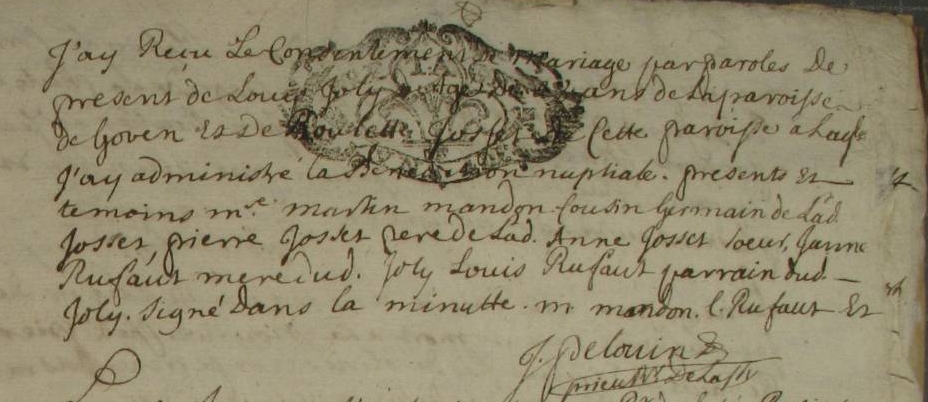 J'ay Reçu Le Consentement de mariage par paroles De
present de Louis Joly age De ans de La paroisse
de Goven Et De Roulette Josset de Cette paroisse a Laqle
J'ay administré la Benediction nuptiale. presents Et
temoins mre martin mandon Cousin Germain de Lad.
Josset, pierre Josset pere de Lad. Anne Josset soeur, Janne
Rufaut mere dud. Joly Louis Rufaut parrain dud.
Joly. signé Dans la minutte. m. mandon. l. Rufaut Et
J. Delouin
prieur